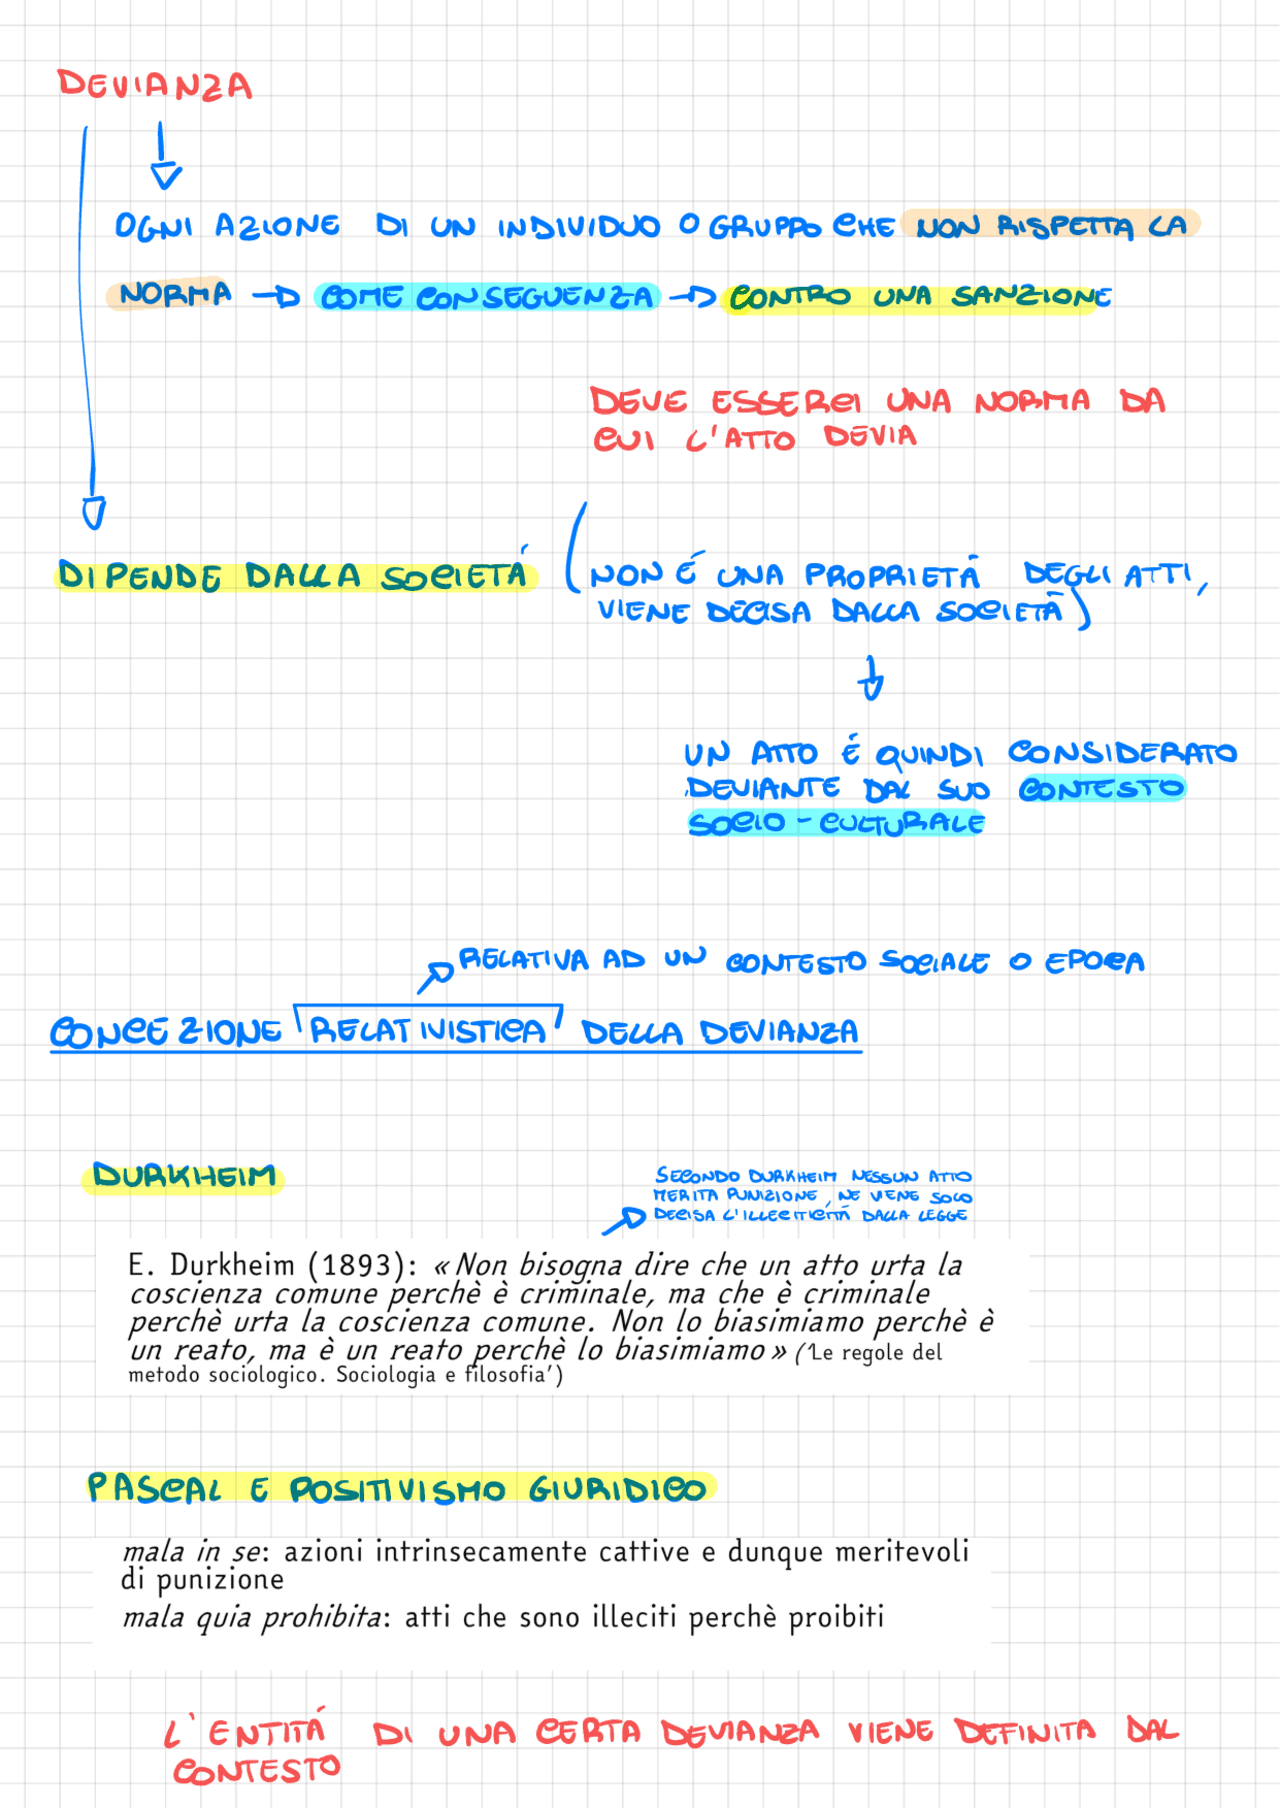 DEVIANZA
OGNI AZIONE DI UN INDIVIDUO O GRUPPO CHE NON RISPETTA LA
NORMA → COME CONSEGUENZA → CONTRO UNA SANZIONE
DEVE ESSERCI UNA NORMA DA
CUI L'ATTO DEVIA
DIPENDE DALLA SOCIETÁ
(NON É UNA PROPRIETÁ DEGLI ATTI,
VIENE DECISA DALLA SOCIETÁ)
UN ATTO É QUINDI CONSIDERATO
DEVIANTE DAL SUO CONTESTO
SOCIO-CULTURALE
RELATIVA AD UN CONTESTO SOCIALE O EPOCA
CONCEZIONE RELATIVISTICA DELLA DEVIANZA
DURKHEIM
SECONDO DURKHEIM NESSUN ATTO
MERITA PUNIZIONE, NE VIENE SOLO
DECISA L'ILLECITICITÁ DALLA LEGGE
E. Durkheim (1893): «Non bisogna dire che un atto urta la
coscienza comune perchè è criminale, ma che è criminale
perchè urta la coscienza comune. Non lo biasimiamo perchè è
un reato, ma è un reato perchè lo biasimiamo» ('Le regole del
metodo sociologico. Sociologia e filosofia')
PASCAL E POSITIVISMO GIURIDICO
mala in se: azioni intrinsecamente cattive e dunque meritevoli
di punizione
mala quia prohibita: atti che sono illeciti perchè proibiti
L'ENTITÁ DI UNA CERTA DEVIANZA VIENE DEFINITA DAL
CONTESTO